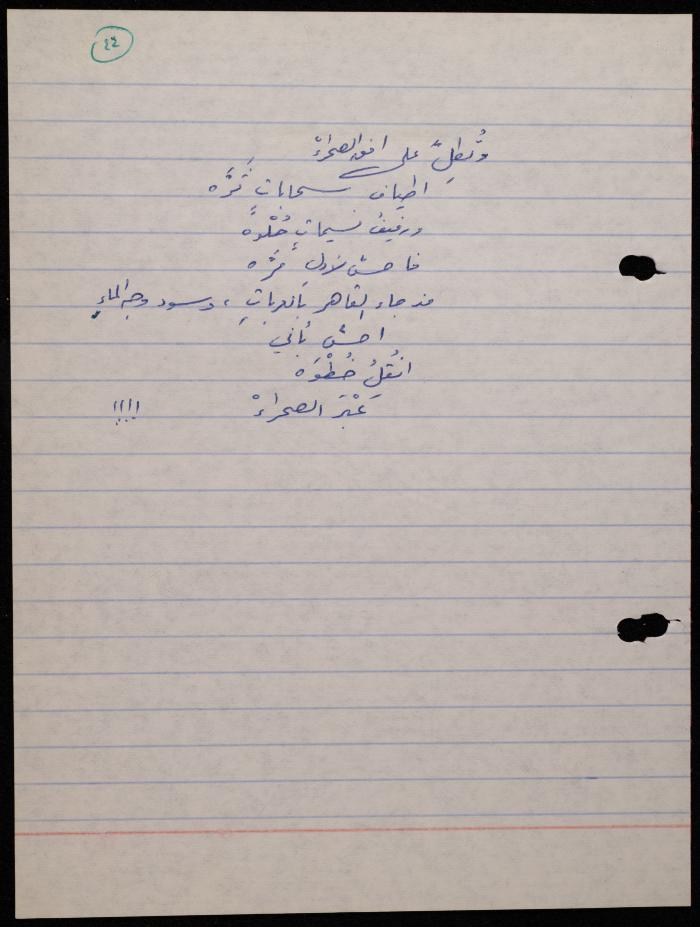 ٤٤
وتُطِلّ على افق الصحراءْ
اطياف سحاباتٍ ثَرَّه
ورفيفُ نسيماتٍ حُلْوَه
فاحسّ لأولِ مَرَّه
منذ جاء القاهر بالعرباتِ ، وسود وجه الماءِ
احسّ بأني
انقُلُ خُطْوَه
عَبْرَ الصحراءْ !!!!